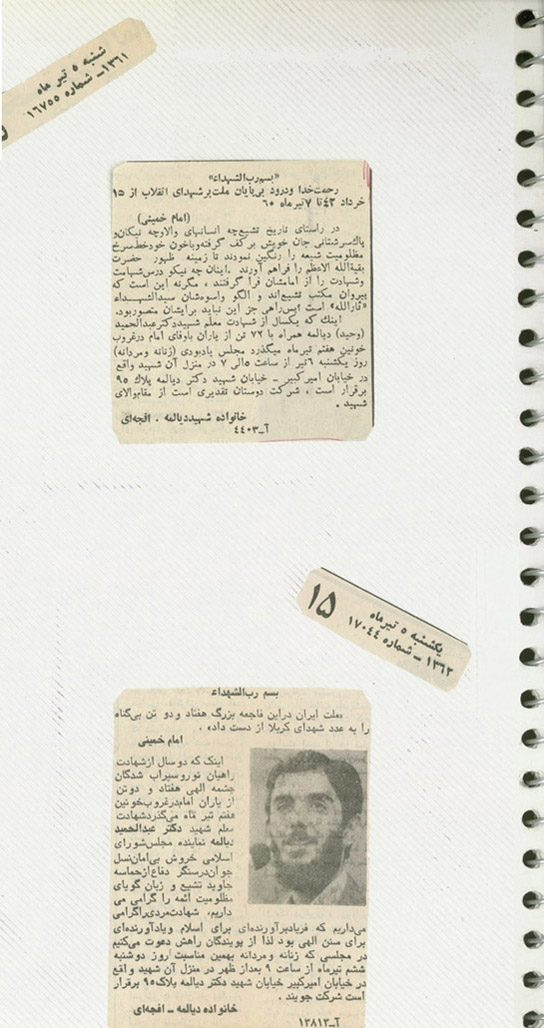 شنبه ۵ تیر ماه
۱۳۶۱ـ شماره ۱۶۷۵۵
«بسم رب الشهداء»
رحمت خدا و درود بی‌پایان ملت بر شهدای انقلاب از ۱۵
خرداد ۴۲ تا ۷ تیر ماه ۶۰
(امام خمینی)
در راستای تاریخ تشیع چه انسانهای والا و چه نیکان و
پاک سرشتانی جان خویش بر کف گرفته و با خون خود خط سرخ
مظلومیت شیعه را رنگین نمودند تا زمینه ظهور حضرت
بقیةالله الاعظم را فراهم آورند . اینان چه نیکو درس شهامت
وشهادت را از امامشان فرا گرفتند ، مگر نه این است که
پیروان مکتب تشیع‌اند و الگو و اسوه‌شان سیدالشهداء
«ثارالله» است؟ پس راهی جز این نباید برایشان متصور بود.
اینک که یکسال از شهادت معلم شهید دکتر عبدالحمید
(وحید) دیالمه همراه با ۷۲ تن از یاران باوفای امام در غروب
خونین هفتم تیرماه میگذرد مجلس یادبودی (زنانه ومردانه)
روز یکشنبه ۶ تیر از ساعت ۵ الی ۷ در منزل آن شهید واقع
در خیابان امیرکبیر ـ خیابان شهید دکتر دیالمه پلاک ۹۵
برقرار است ، شرکت دوستان تقدیری است از مقام والای
شهید .
خانواده شهید دیالمه . افجه‌ای
آـ۴۴۰۳
۱۵
یکشنبه ۵ تیرماه
۱۳۶۲ ـ شماره ۱۷۰۴۴
بسم رب الشهداء
ملت ایران در این فاجعه بزرگ هفتاد و دو تن بی‌گناه
را به عدد شهدای کربلا از دست داد» .
امام خمینی
اینک که دو سال از شهادت
راهیان نور و سیراب شدگان
چشمه الهی هفتاد و دو تن
از یاران امام در غروب خونین
هفتم تیر ماه می‌گذرد شهادت
معلم شهید دکتر عبدالحمید
دیالمه نماینده مجلس شورای
اسلامی خروش بی‌امان نسل
جوان در سنگر دفاع از حماسه
جاوید تشیع و زبان گویای
مظلومیت ائمه را گرامی می
داریم، شهادت مردی را گرامی
می‌داریم که فریاد بر آورنده‌ای برای اسلام و یاد آورنده‌ای
برای سنن الهی بود لذا از پویندگان راهش دعوت می‌کنیم
در مجلسی که زنانه و مردانه بهمین مناسبت از روز دوشنبه
ششم تیرماه از ساعت ۹ بعد از ظهر در منزل آن شهید واقع
در خیابان امیرکبیر خیابان شهید دکتر دیالمه پلاک ۹۵ برقرار
است شرکت جویند .
خانواده دیالمه ـ افجه‌ای
آـ۱۳۸۱۳